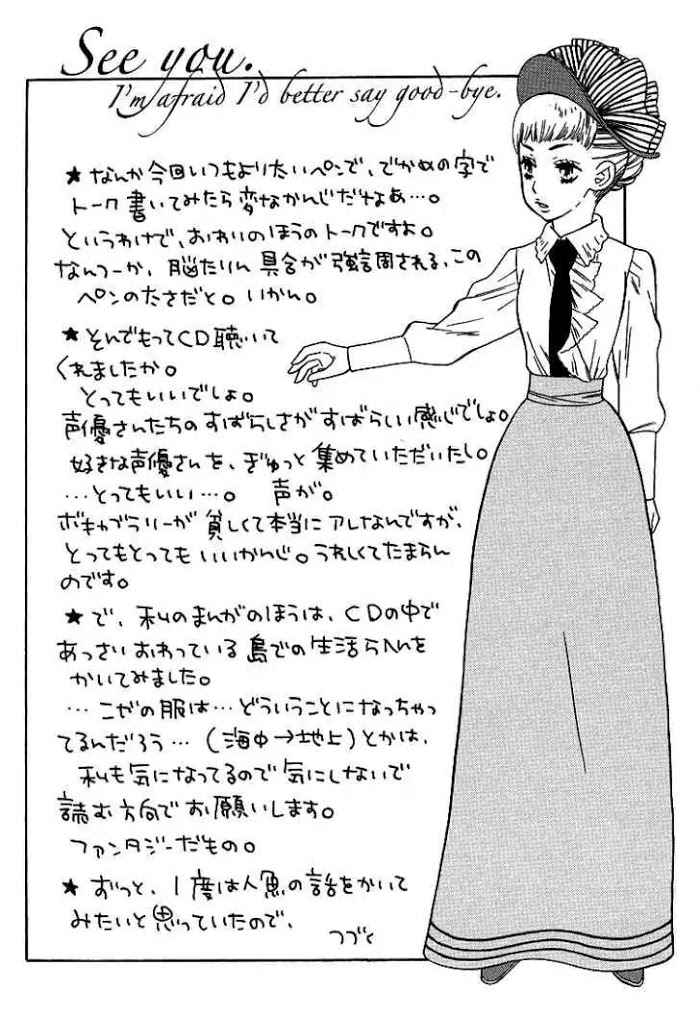 See you.
I'm afraid I'd better say good-bye.
★なんか今回いつもより太いペンで、でかめの字で
トーク書いてみたら変なかんじだなぁ…。
というわけで、おわりのほうのトークですよ。
なんつーか、脳たりん具合が強調される、この
ペンの太さだと。いかん。
★そんでもってCD聴いて
くれましたか。
とってもいいでしょ。
声優さんたちのすばらしさがすばらしい感じでしょ。
好きな声優さんを、ぎゅっと集めていただいたし。
…とってもいい…。 声が。
ボキャブラリーが貧しくて本当にアレなんですが、
とってもとってもいいかんじ。うれしくてたまらん
のです。
★で、私のまんがのほうは、CDの中で
あっさりおわっている島での生活らへんを
かいてみました。
…こぜの服は…どういうことになっちゃっ
てるんだろう…(海中→地上)とかは、
私も気になってるので気にしないで
読む方向でお願いします。
ファンタジーだもの。
★ずっと、1度は人魚の話をかいて
みたいと思っていたので、
つづく